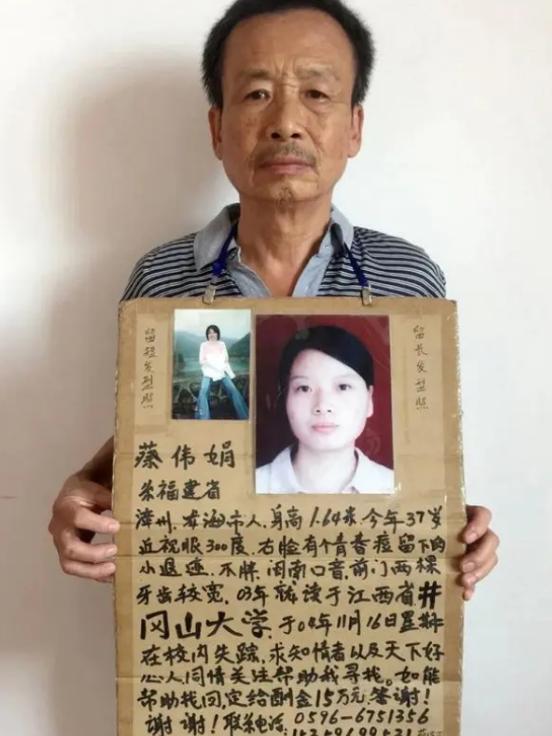 留短发型照
留长发型照
蔡伟娟
系福建省
漳州.龙海市人.身高1.64米.今年37岁
近视眼300度.右脸有个青春痘留下的
小退迹.不胖.闽南口音.前门两棵
牙齿较宽.03年就读于江西省井
冈山大学.于04年11月16日星期
在校内失踪.求知情者以及天下好
心人同情关注帮助我寻找。如能
帮助找回.定给酬金15万元.答谢!
谢谢!联系电话:0596-6751356